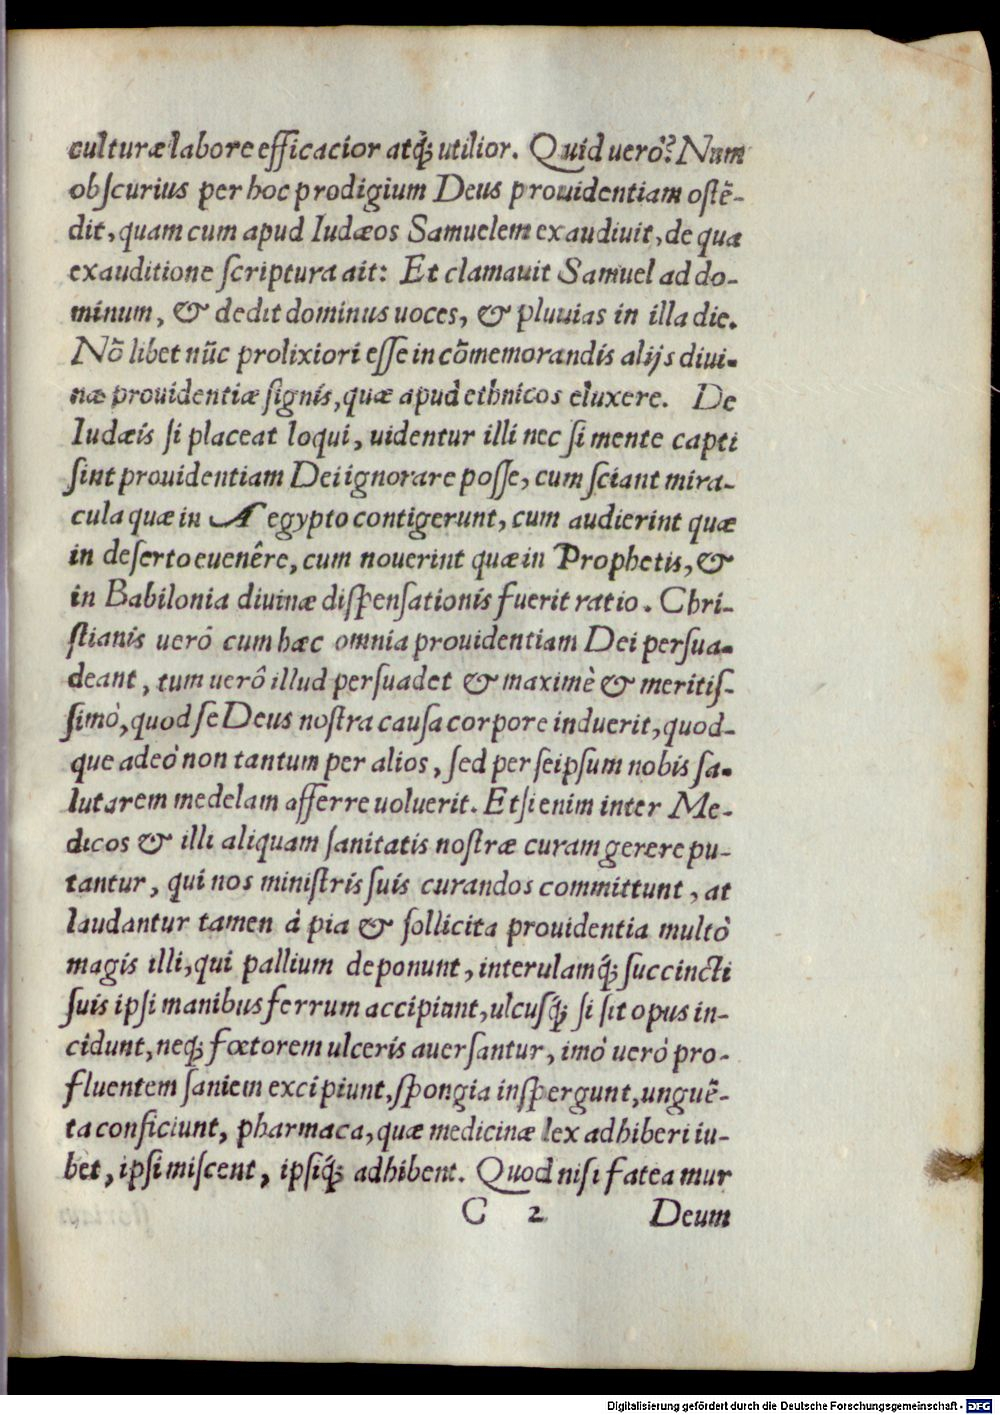 culturæ labore efficacior atq́; utilior. Quid uerò? Num
obſcurius per hoc prodigium Deus prouidentiam oſtẽ-
dit, quam cum apud Iudæos Samuelem exaudiuit, de qua
exauditione ſcriptura ait: Et clamauit Samuel ad do-
minum, & dedit dominus uoces, & pluuias in illa die.
Nõ libet nũc prolixiori eſſe in cõmemorandis alijs diui-
næ prouidentiæ ſignis, quæ apud ethnicos eluxere. De
Iudæis ſi placeat loqui, uidentur illi nec ſi mente capti
ſint prouidentiam Dei ignorare poſſe, cum ſciant mira-
cula quæ in Aegypto contigerunt, cum audierint quæ
in deſerto euenêre, cum nouerint quæ in Prophetis, &
in Babilonia diuinæ diſpenſationis fuerit ratio. Chri-
ſtianis uerò cum hæc omnia prouidentiam Dei perſua-
deant, tum uerô illud perſuadet & maximè & meritiſ-
ſimò, quod ſe Deus noſtra cauſa corpore induerit, quod-
que adeò non tantum per alios, ſed per ſeipſum nobis ſa-
lutarem medelam afferre uoluerit. Etſi enim inter Me-
dicos & illi aliquam ſanitatis noſtræ curam gerere pu-
tantur, qui nos miniſtris ſuis curandos committunt, at
laudantur tamen à pia & ſollicita prouidentia multò
magis illi, qui pallium deponunt, interulamq́; ſuccincti
ſuis ipſi manibus ferrum accipiunt, ulcuſq́; ſi ſit opus in-
cidunt, neq; fœtorem ulceris auerſantur, imò uerò pro-
fluentem ſaniem excipiunt, ſpongia inſpergunt, unguẽ-
ta conficiunt, pharmaca, quæ medicinæ lex adhiberi iu-
bet, ipſi miſcent, ipſiq́; adhibent. Quod niſi fateamur
C 2 Deum
Digitalisierung gefördert durch die Deutsche Forschungsgemeinschaft - DFG